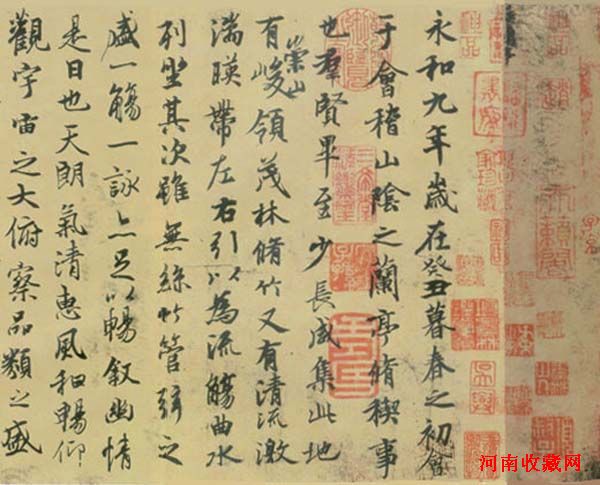 永和九年歲在癸丑暮春之初會
于會稽山陰之蘭亭脩稧事
也羣賢畢至少長咸集此地
有崇山峻領茂林脩竹又有清流激
湍暎帶左右引以為流觴曲水
列坐其次雖無絲竹管弦之
盛一觴一詠亦足以暢叙幽情
是日也天朗氣清惠風和暢仰
觀宇宙之大俯察品類之盛
河南收藏网